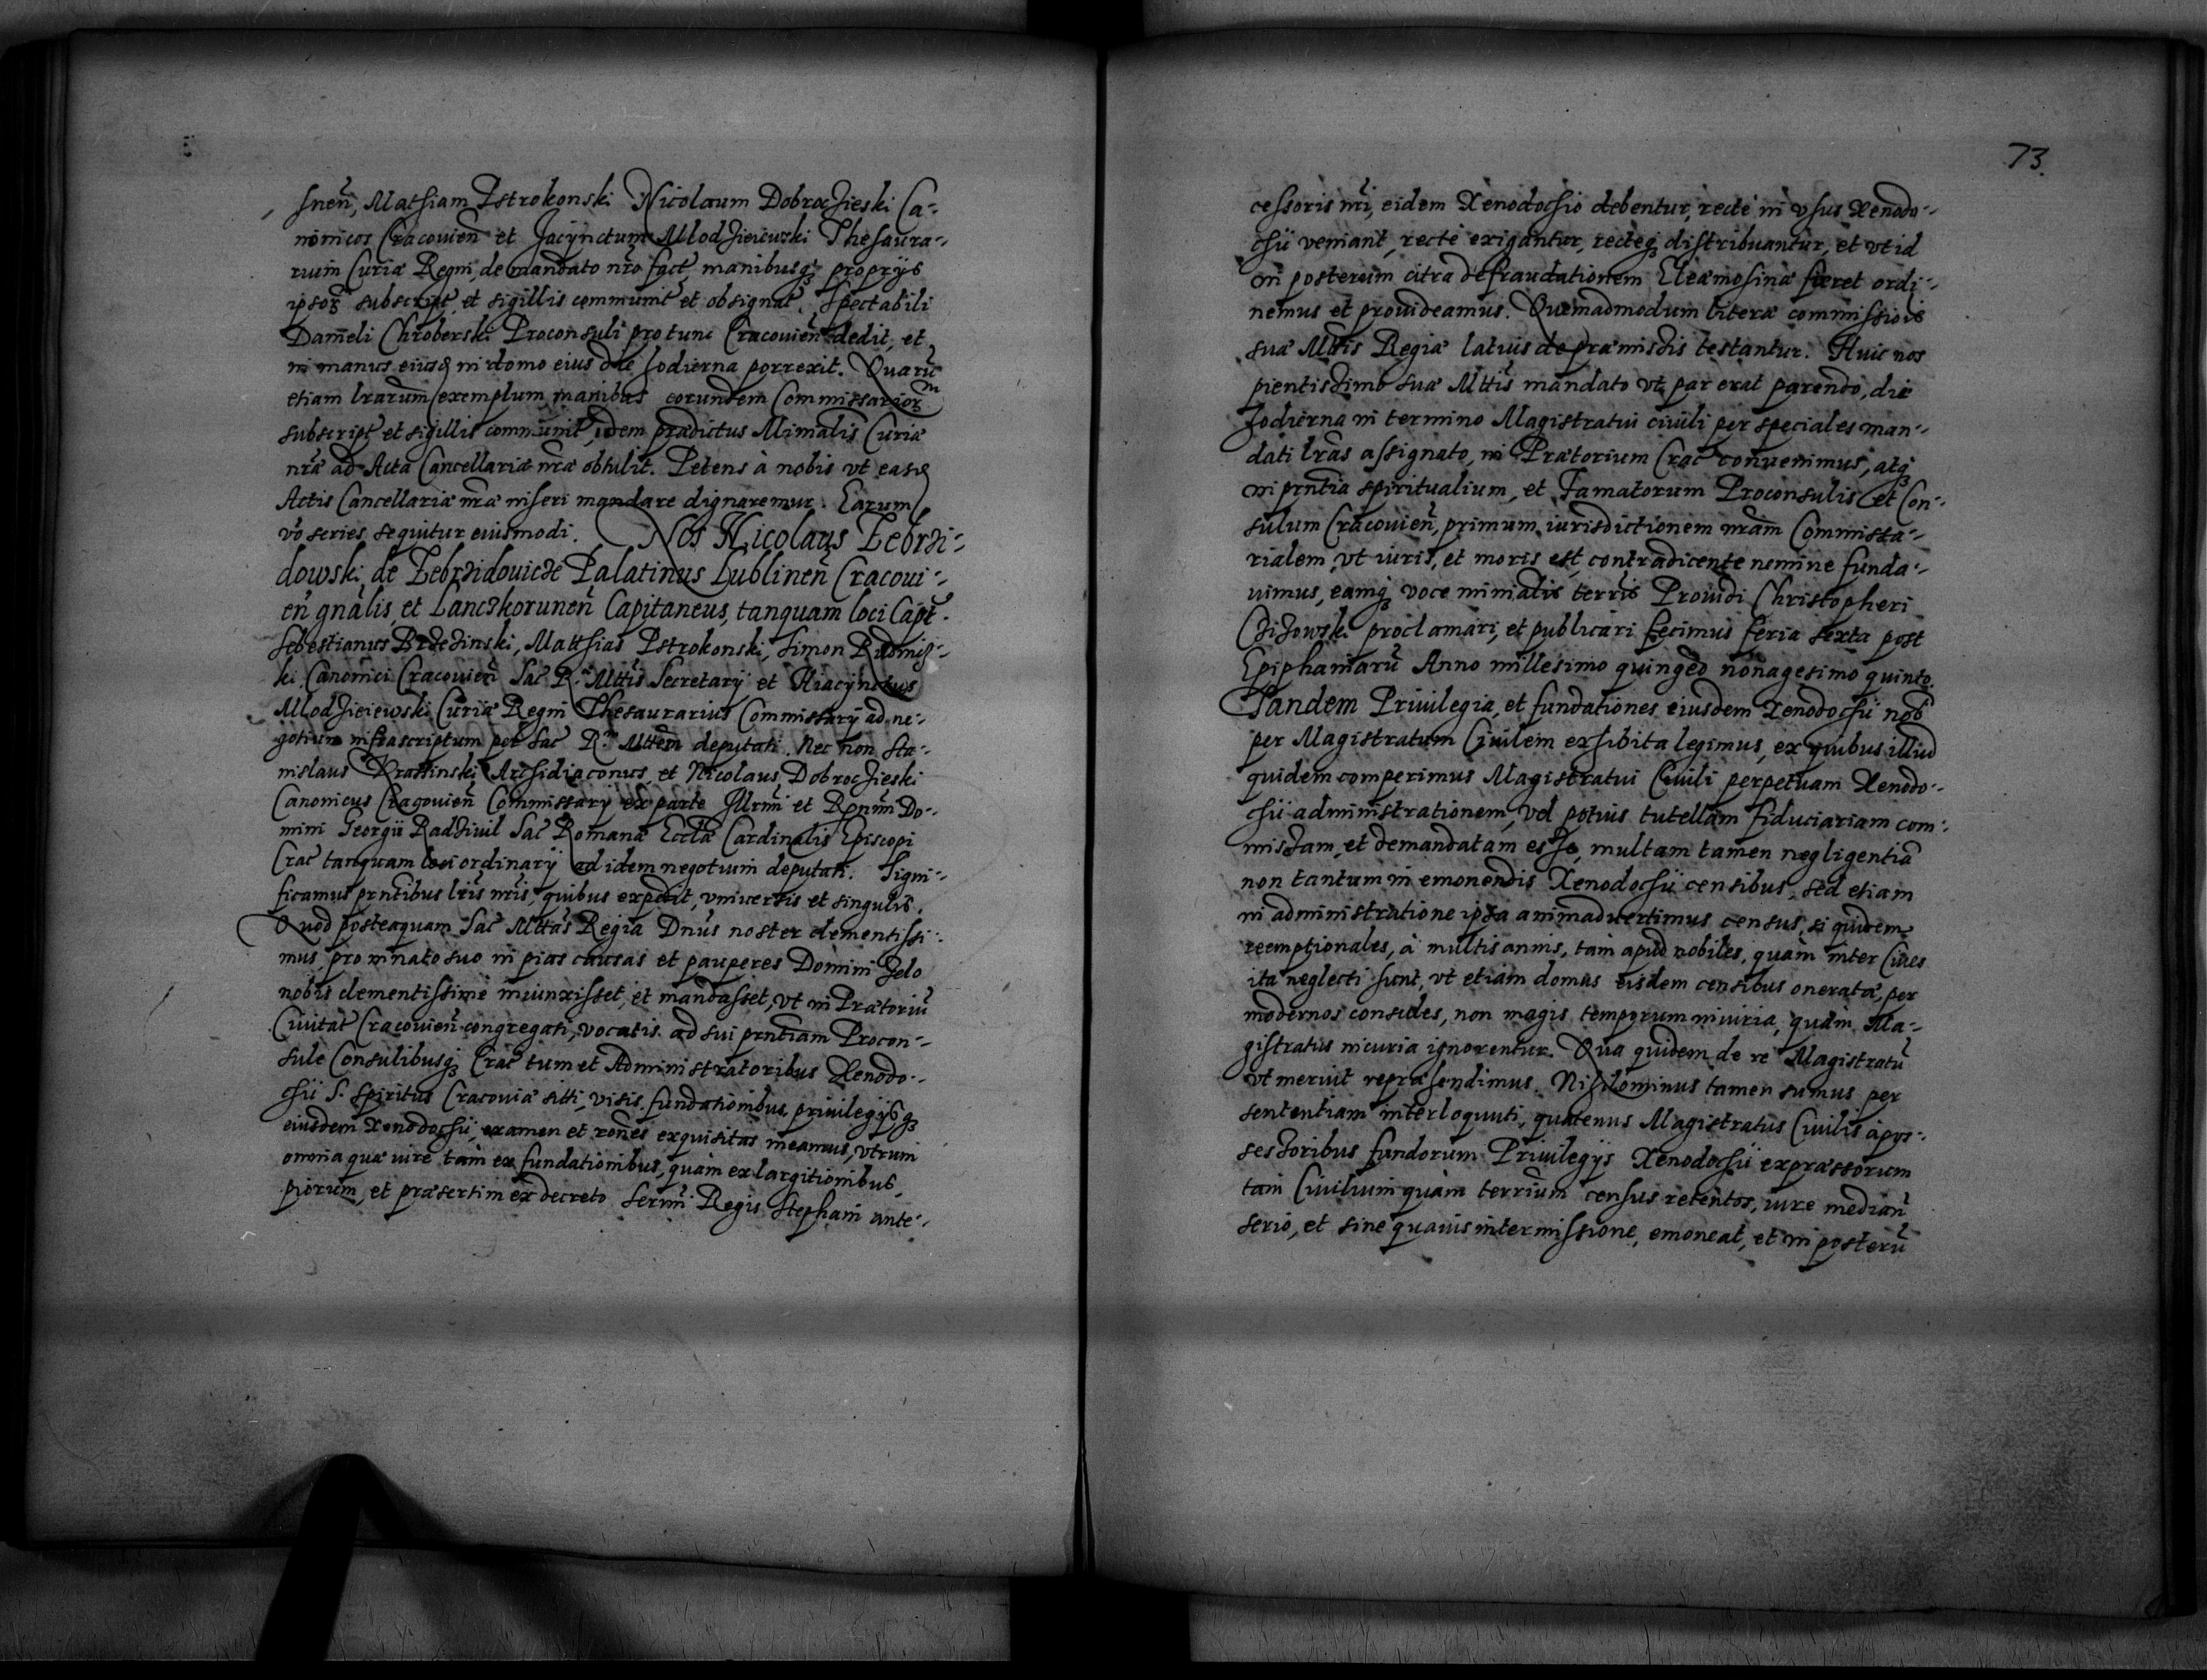 snen̄, Mathiam Pstrokonski Nicolaum Dobroczieski Ca-
nonicos Cracouien̄ et Jacynctum Mlodzieiewski Thesaura-
rium Curiæ Regni, de mandato nro fact manibusq; proprÿs
ipsor subscript, et sigillis communit et obsignat. Spectabili
Danieli Chroberski Proconsuli pro tunc Cracouien̄ dedit, et
in manus eiusd in domo eius die hodierna porrexit. Quarū
etiam lrarum exemplum manibus eorundem Commissarior
subscript et sigillis communit, idem prædictus Minialis Curiæ
nrǣ ad Acta Cancellariæ nræ obtulit. Petens à nobis vt easd
Actis Cancellariæ nræ inseri mandare dignaremur. Earum
vō series sequitur eiusmodi. Nos Nicolaus Zebrzi-
dowski de Zebrzidouicze Palatinus Lublinen̄ Cracoui-
en̄ gnālis, et Lanczkorunen̄ Capitaneus, tanquam loci Capt.
Sebestianus Brzezinski, Matthias Pstrokonski, Simon Rudnic-
ki Canonici Cracouien̄ Sac R. Mttis Secretarÿ et Hiacynctus
Mlodzieiewski Curiæ Regni Thesaurarius Commissarÿ ad ne-
gotium infrascriptum per Sac R. Mttem deputati. Nec non Sta-
nislaus Krassinski Archidiaconus, et Nicolaus Dobroczieski
Canonicus Cracouien̄ Commissarÿ ex parte Illrmi et Rndmi Do-
mini Georgii Radziwil Sac Romanæ Ecclæ Cardinalis Episcopi
Crac tanquam loci ordinarÿ ad idem negotium deputati. Signi-
ficamus prntibus lris nris, quibus expedit, vniuersis et singulis.
Quod posteaquam Sac Mttas Regia Dnus noster clementissi-
mus, pro innato suo in pias causas et pauperes Domini Zelo
nobis clementissime iniunxisset, et mandasset, vt in Prætoriū
Ciuitat Cracouien̄ congregati, vocatis ad sui prntiam Procon-
sule Consulibusq; Crac tum et Administratoribus Xenodo-
chii S. Spiritus Cracouiæ siti, visis fundationibus priuilegÿsq;
eiusdem Xenodochii, examen et rones exquisitas ineamus, vtrum
omnia quæ iure tam ex fundationibus, quàm ex largitionibus
piorum, et præsertim ex decreto Sermi Regis Stephani ante-
73.
cessoris nri, eidem Xenodochio debentur, recte in vsus Xenodo-
chii veniant, recte exigantur, recteq; distribuantur, et vt id
in posterum citra defraudationem Eleæmosinæ fieret ordi-
nemus et prouideamus. Quemadmodum literæ commissiois
suæ Mttis Regiæ latius de præmissis testantur. Huic nos
pientissimo suæ Mttis mandato vt par erat parendo, die
hodierna in termino Magistratui ciuili per speciales man-
dati lras assignato, in Prætorium Crac conuenimus, atq;
in prntia spiritualium, et Famatorum Proconsulis et Con-
sulum Cracouien̄, primum iurisdictionem nram Commissa-
rialem, vt iuris, et moris est, contradicente nemine funda-
uimus, eamq; voce minialis terris Prouidi Christopheri
proclamari, et publicari fecimus feria sexta post
Epiphaniarū Anno millesimo quinged nonagesimo quinto.
Tandem Priuilegia, et fundationes eiusdem Xenodochii nob
per Magistratum Ciuilem exhibita legimus, ex quibus illud
quidem comperimus Magistratui Ciuili perpetuam Xenodo-
chii administrationem, vel potius tutellam fiduciariam com-
missam, et demandatam esse, multam tamen negligentiā
non tantum in emonendis Xenodochii censibus, sed etiam
in administratione ipsa animaduertimus census, si quidem
reemptionales, à multis annis, tam apud nobiles, quàm inter Ciues
ita neglecti sunt, vt etiam domus eisdem censibus oneratæ, per
modernos consules, non magis temporum iniuria, quàm Ma-
gistratus incuria ignorentur. Qua quidem de re Magistratū
vt meruit repræhendimus. Nihilominus tamen sumus per
sententiam interloquuti, quatenus Magistratus Ciuilis à pos-
sessoribus fundorum Priuilegÿs Xenodochii expræssorum
tam Ciuilium quàm terrium census retentos, iure median̄
serio, et sine quauis intermissione, emoneat, et in posterū